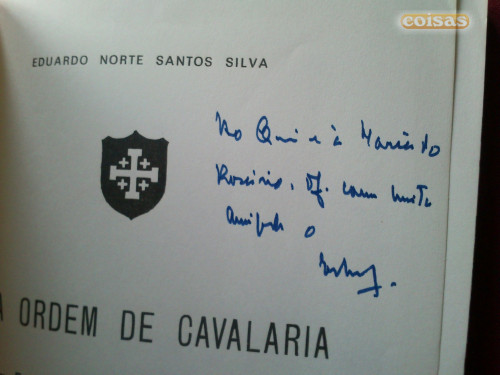 coisas
EDUARDO NORTE SANTOS SILVA
Ao Quim e à Maria do
Rosário, of. com muita
amizade o
A ORDEM DE CAVALARIA